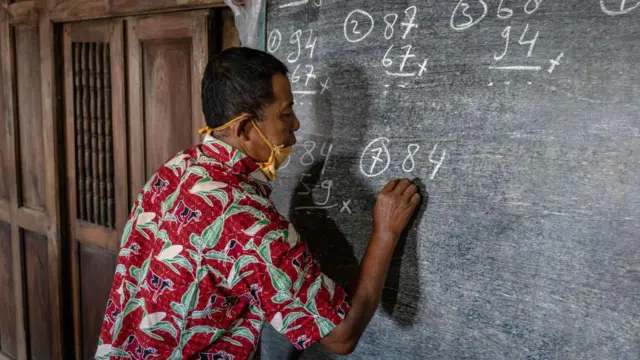 94
67 x
② 87
67 x
③ 68
94 x
84
59 x
⑦ 84